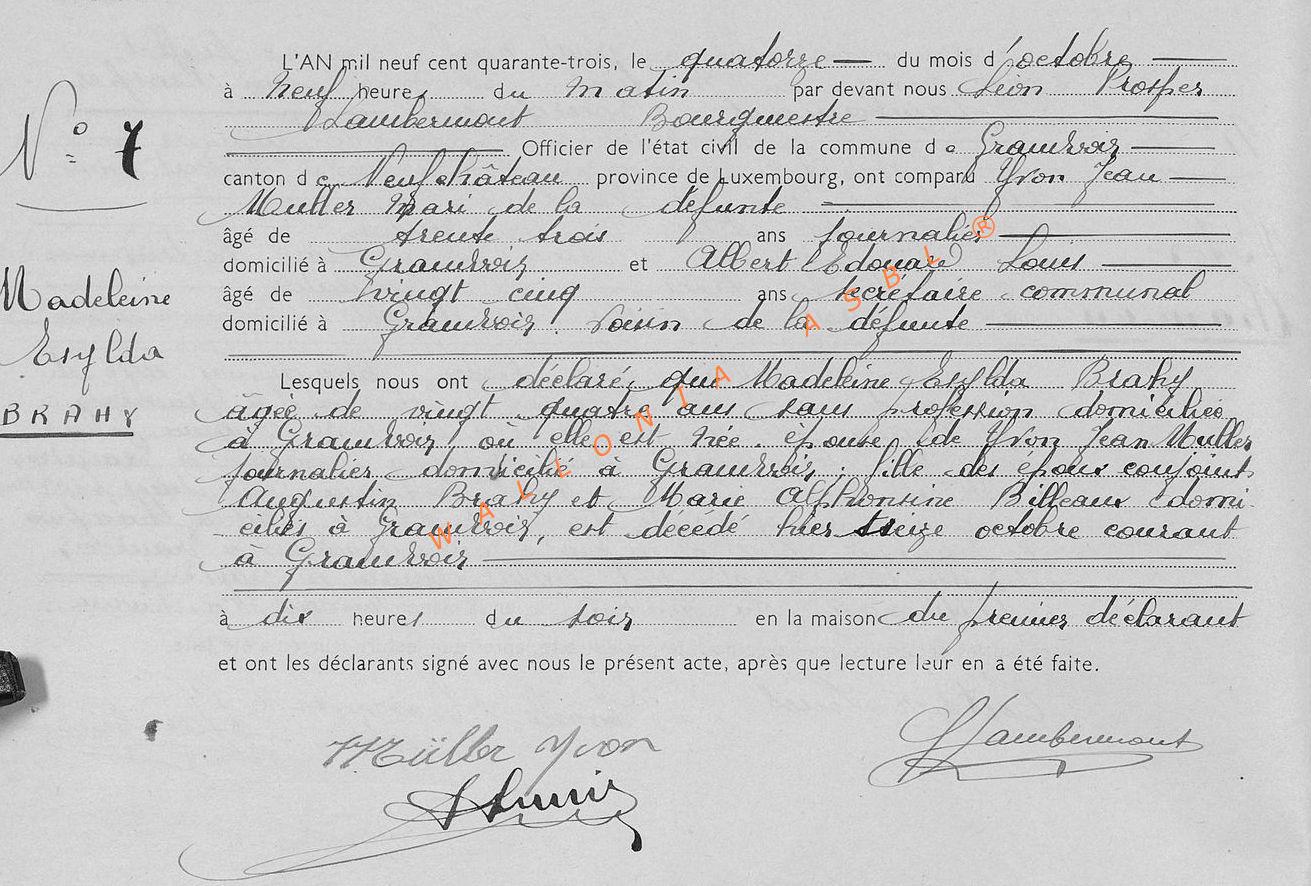 L'AN mil neuf cent quarante-trois, le quatorze du mois d'octobre
à neuf heures du matin par devant nous Léon Prosper
Lambermont Bourgmestre
Officier de l'état civil de la commune de Grandvoir
canton de Neufchâteau province de Luxembourg, ont comparu Yvon Jean
Muller mari de la défunte
âgé de trente trois ans journalier
domicilié à Grandvoir et Albert Edouard Louis
âgé de vingt cinq ans secrétaire communal
domicilié à Grandvoir. Voisin de la défunte
N° 7
Madeleine
Esylda
BRAHY
Lesquels nous ont déclaré que Madeleine Esylda Brahy
âgée de vingt quatre ans sans profession domiciliée
à Grandvoir où elle est née. épouse de Yvon Jean Muller
journalier domicilié à Grandvoir. fille des époux conjoints
Augustin Brahy et Marie Alphonsine Billeaux domi-
ciliés à Grandvoir, est décédé hier treize octobre courant
à Grandvoir
à dix heures du soir en la maison du premier déclarant
et ont les déclarants signé avec nous le présent acte, après que lecture leur en a été faite.
Müller Yvon
Lambermont
WALLONIA ASBL ®